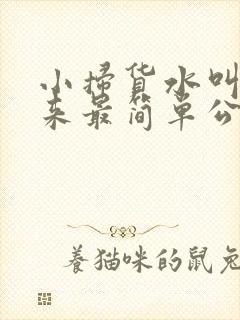 小扫货水叫
来最简单公
养猫咪的鼠兔